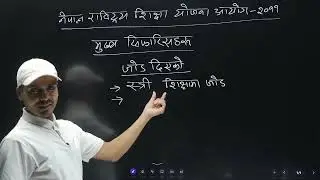 नेपाल राष्ट्रिय शिक्षा योजना आयोग - २०११
मुख्य सिफारिसहरू
जोड दिएको
→ स्त्री शिक्षामा जोड
→